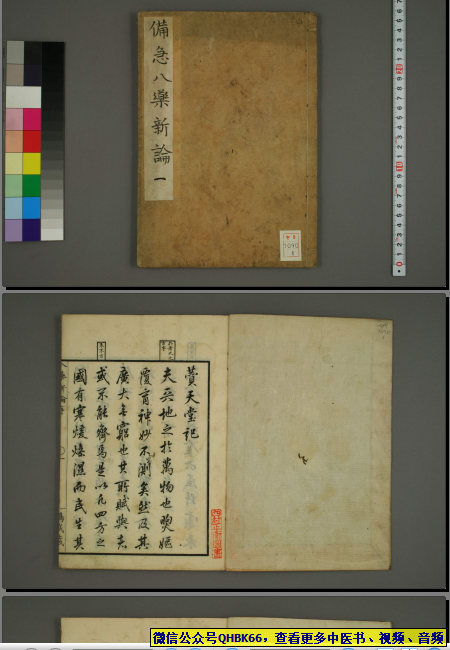 備急八藥新論 一
7040
1
賛天堂記
夫天地之於萬物也煦嫗
覆育神妙不測矣然及其
廣大無窮也其所賦與夫
或不能齊焉是以凡四方之
國有寒煖燥濕而民生其
微信公众号QHBK66，查看更多中医书、视频、音频